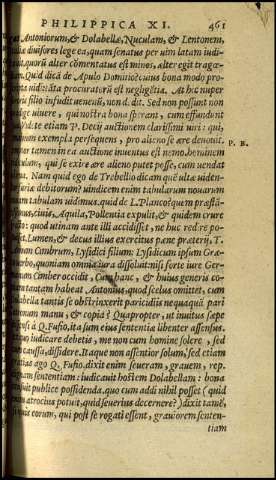 PHILIPPICA XI. 461
Antoniorum, & Dolabellæ, Nuculam, & Lentonem,
diuisores lege ea, quam senatus per uim latam iudi-
quorũ alter cõmentatus est mimos, alter egit tragœ-
Quid dicã de Apulo Domitio? cuius bona modo pro-
uidi: tãta procuratorũ est negligẽtia. At hic nuper
filio infudit uenenũ, non dedit. Sed non possunt non
uiuere, qui nostra bona sperant, cum effundunt
etiam P. Decij auctionem clarissimi uiri: qui,
exempla persequens, pro alieno se ære deuouit. P. B.
tamen in ea auctione inuentus est nemo. hominem
qui se exire ære alieno putet posse, cum uendat
Nam quid ego de Trebellio dicam? quẽ ultæ uiden-
debitorum? uindicem enim tabularum nouarum
tabulam uidemus. quid de L. Planco? quem præstã-
ciuis, Aquila, Pollentia expulit, & quidem crure
quod utinam ante illi accidisset, ne huc redire po-
Lumen, & decus illius exercitus pæne præterij, T.
Cimbrum, Lysidici filium: Lysidicum ipsum Græ-
quoniam omnia iura dissoluit: nisi forte iure Ger-
Cimber occidit. Cum hanc, & huius generis co-
tantam habeat Antonius, quod scelus omittet, cum
tantis se obstrinxerit paricidijs nequaquã pari
manu, & copia? Quapropter, ut inuitus sæpe
à Q. Fufio, ita sum eius sententiæ libenter assensus.
iudicare debetis, me non cum homine solere, sed
caussa, dissidere. Itaque non assentior solum, sed etiam
ago Q. Fufio. dixit enim seueram, grauem, rep.
sententiam: iudicauit hostem Dolabellam: bona
publice possidenda. quo cum addi nihil posset (quid
atrocius potuit, quid seuerius decernere?) dixit tamẽ,
eorum, qui post se rogati essent, grauiorem senten-
tiam